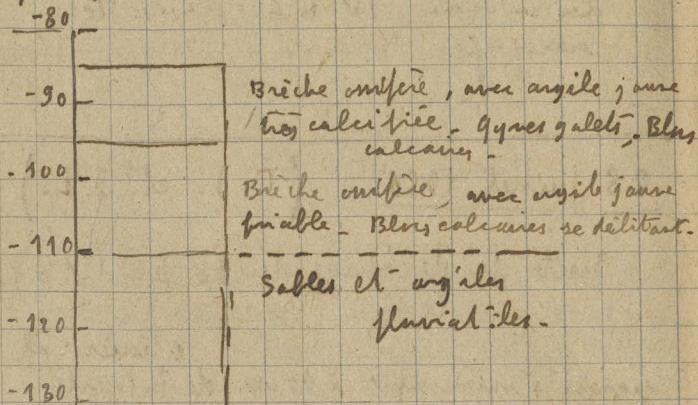 -80
-90
Brèche ossifère, avec argile jaune
très calcifiée - Qques galets - Blocs
calcaires -
-100
Brèche ossifère, avec argile jaune
friable - Blocs calcaires se délitant -
-110
Sables et argiles
fluviatiles -
-120
-130